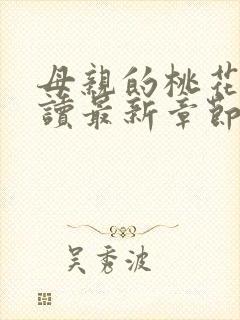 母親的桃花
讀最新章節
吳秀波